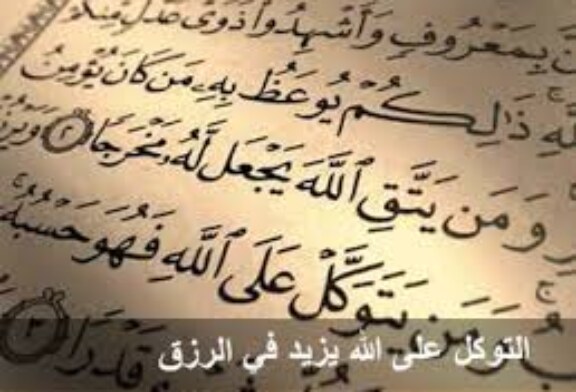 بِمَعْرُوفٍ وَأَشْهِدُوا ذَوَىْ عَدْلٍ مِّنكُمْ
ذَٰلِكُمْ يُوعَظُ بِهِۦ مَن كَانَ يُؤْمِنُ
وَمَن يَتَّقِ ٱللَّهَ يَجْعَل لَّهُۥ مَخْرَجًا ٢
وَمَن يَتَوَكَّلْ عَلَى ٱللَّهِ فَهُوَ حَسْبُهُۥٓ
قَدْرًا ٣
التوكل على الله يزيد في الرزق